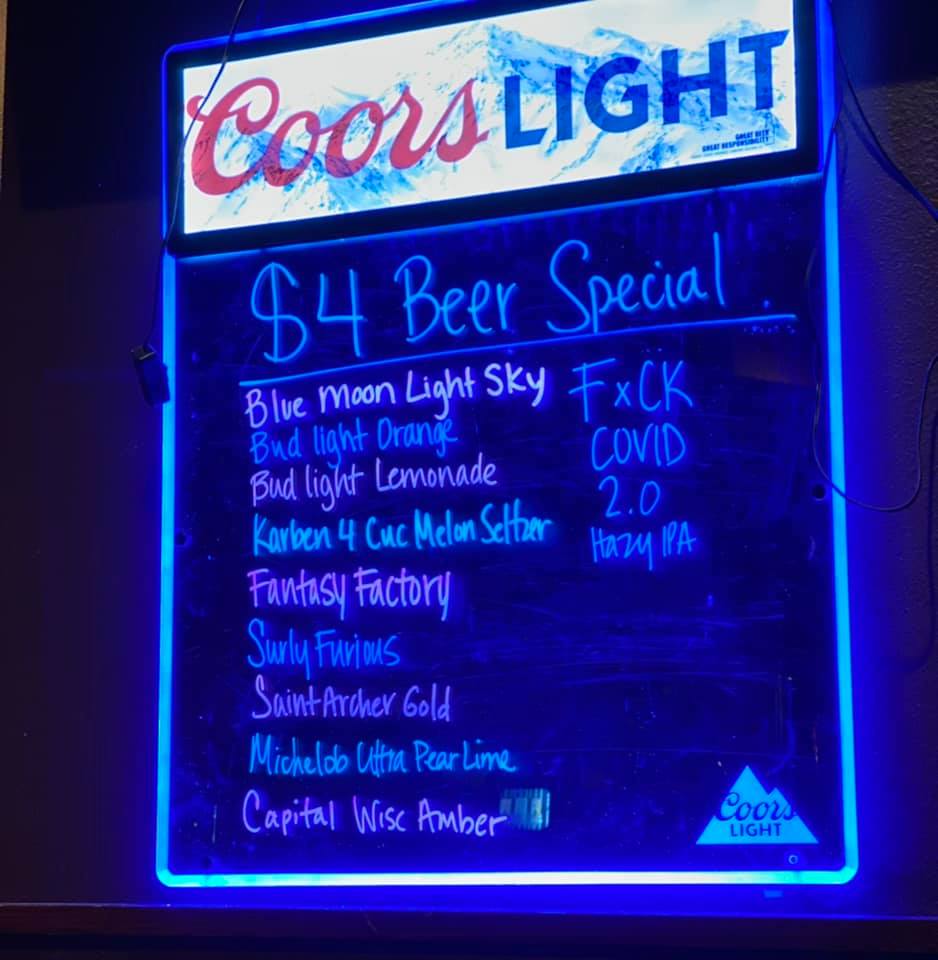 Coors LIGHT
GREAT BEER
GREAT RESPONSIBILITY
$4 Beer Special
Blue Moon Light Sky
Bud light Orange
Bud light Lemonade
Karben 4 Cuc Melon Seltzer
Fantasy Factory
Surly Furious
Saint Archer Gold
Michelob Ultra Pear Lime
Capital Wisc Amber
FxCK
COVID
2.0
Hazy IPA
Coors
LIGHT